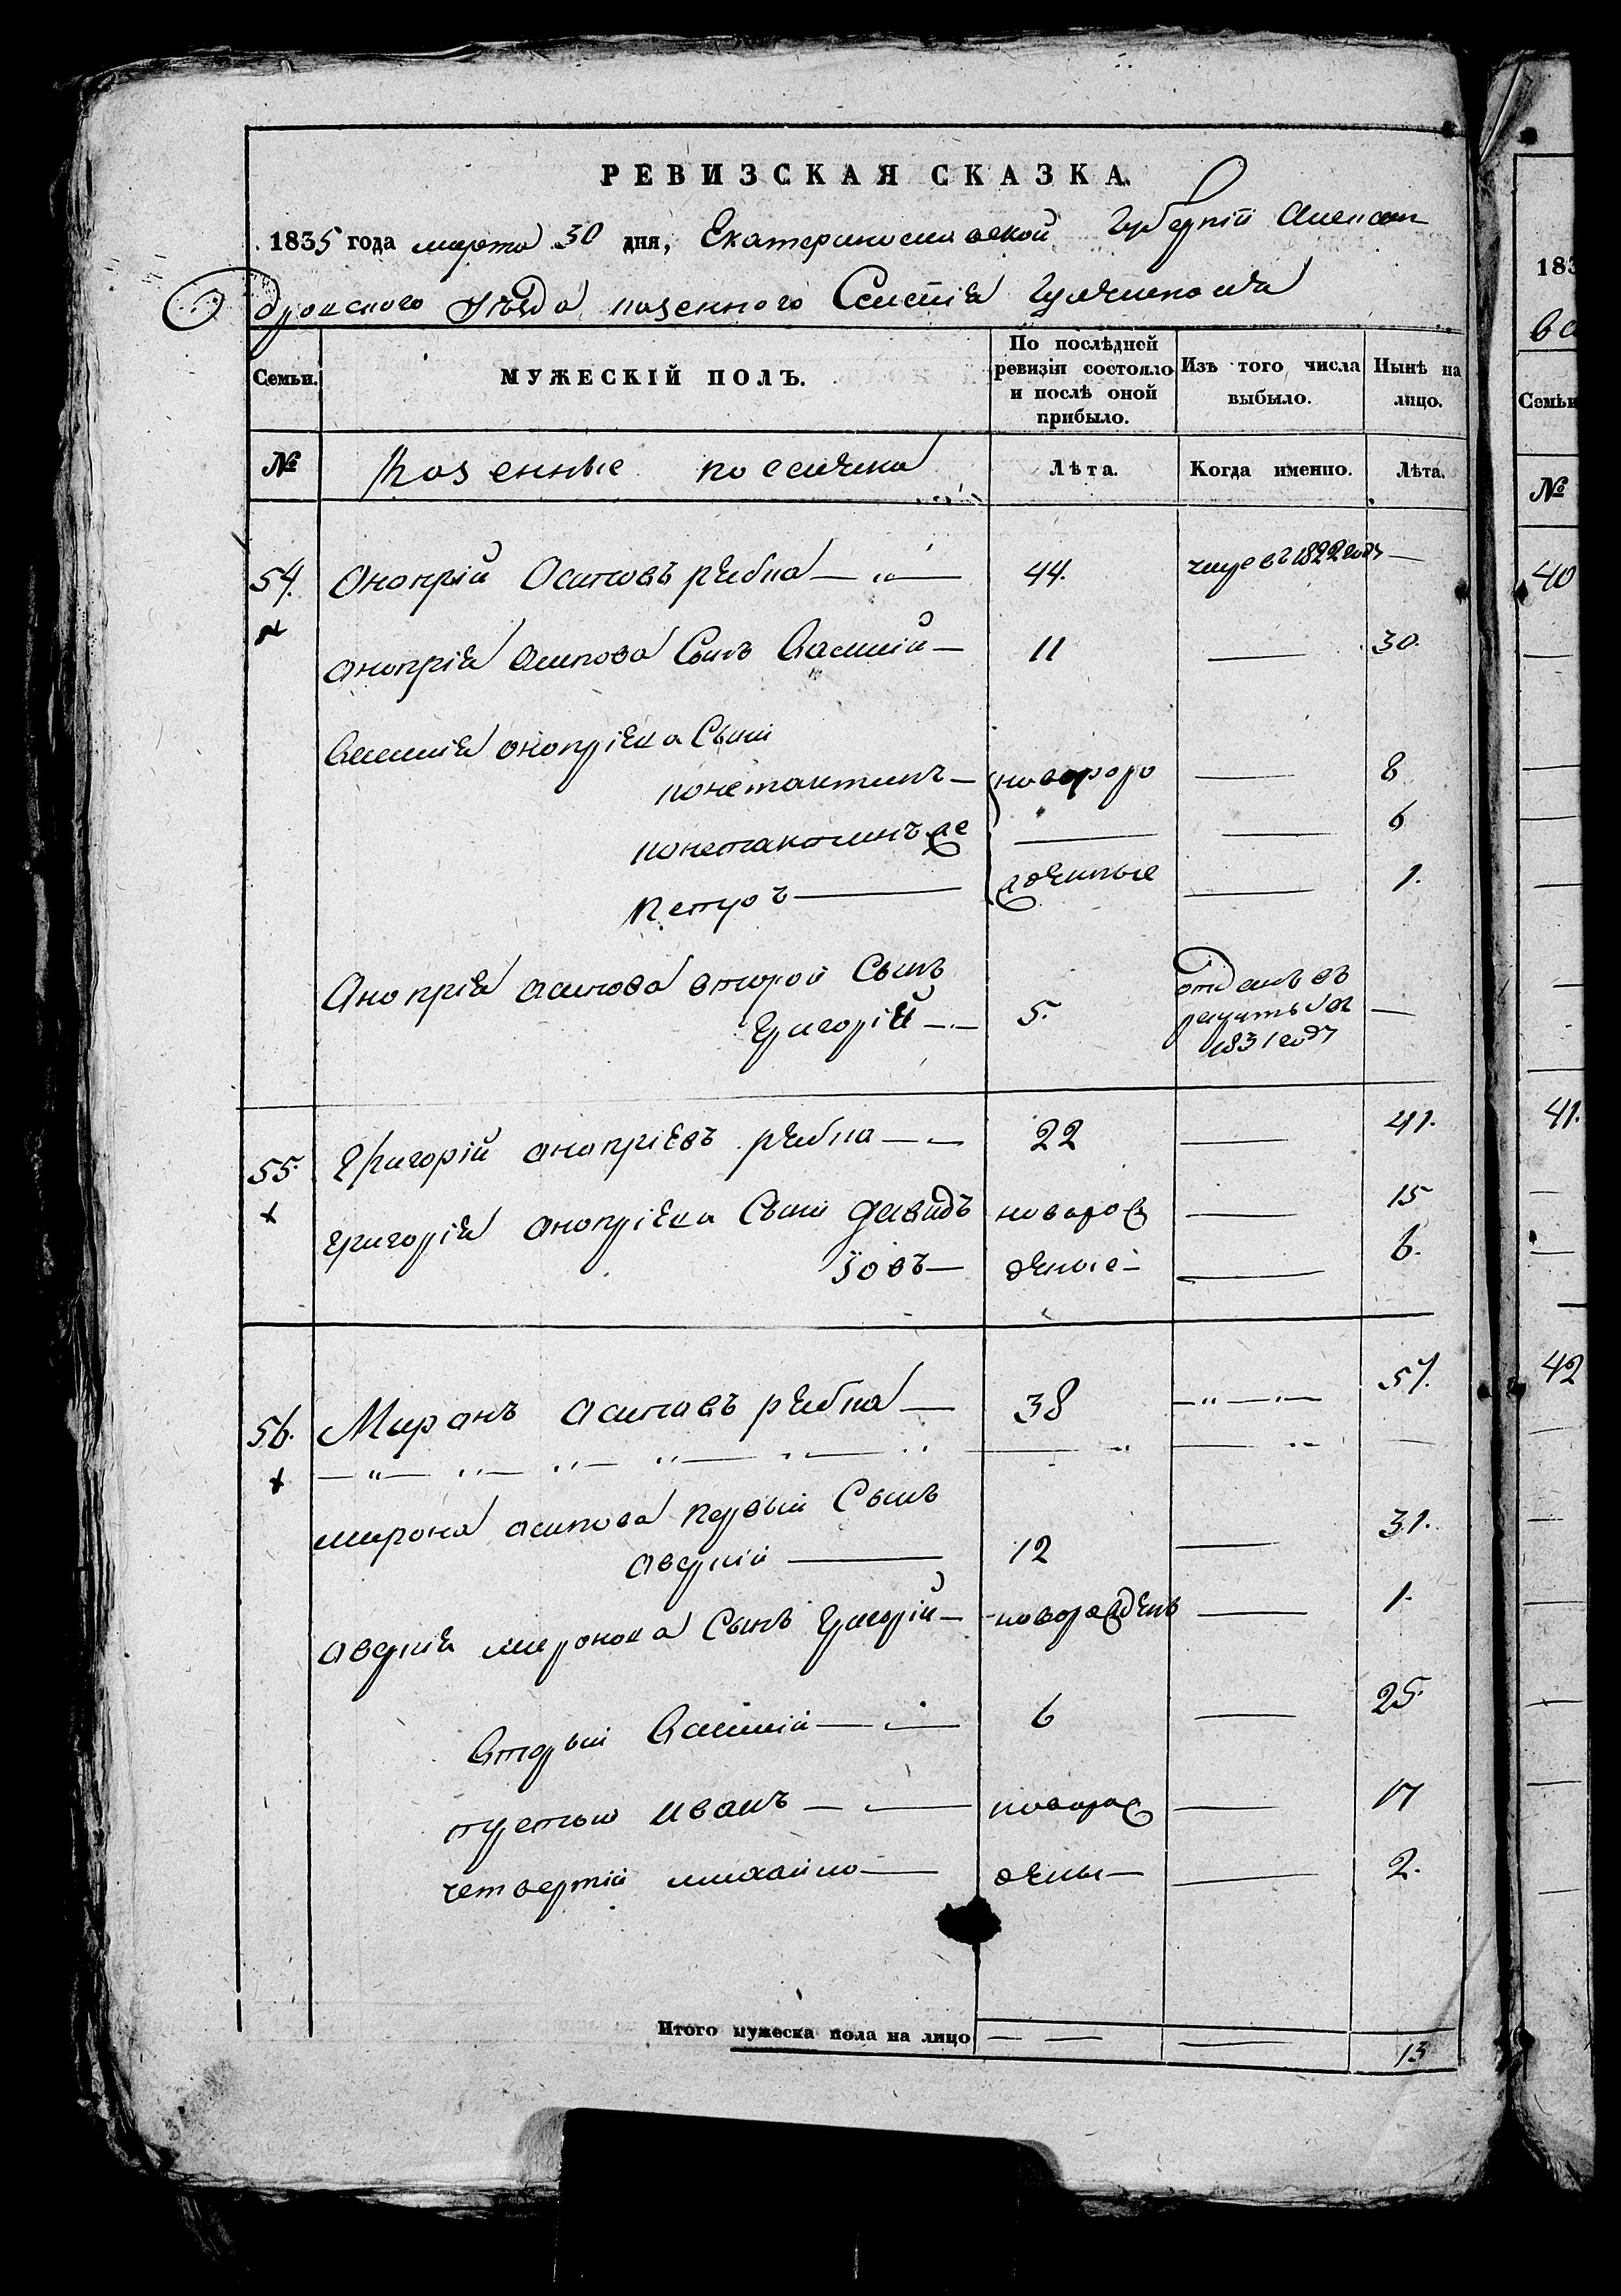 РЕВИЗСКАЯ СКАЗКА.
1835 года марта 30 дня, Екатеринославской Губерніи Алексан
дровского уѣзда казенного Селенія
Семьи.
МУЖЕСКІЙ ПОЛЪ.
По послѣдней ревизіи состояло и послѣ оной прибыло.
Изъ того числа выбыло.
Нынѣ на лицо.
№ Казенные поселяна Лѣта. Когда именно. Лѣта.
54. Онопрій Осиповъ рябка 44. умре в 1822 году
Анопрія Асипова Сынъ Василій 11 30.
Василія онопріева Сыни
констактинъ новоро 8
констактинъ же 6
Петръ жденные 1.
Анопрія асипова второй Сынъ
Григорій 5. отданъ въ рекруты 1831 году
55. Григорій анопріевъ рябка 22 41.
Григорія анопріева Сыни давидъ новорож 15
Іовъ деные 6.
56. Миронъ асиповъ рябка 38 57.
мирона асипова первый Сынъ
аверкій 12 31.
аверкія миронова Сынъ Григорій новорожденъ 1.
вторый Василій 6 25.
третью иванъ новорож 17
четвертій михайло дены 2.
Итого мужеска пола на лицо 13
183
Семьи
№
40
41.
42